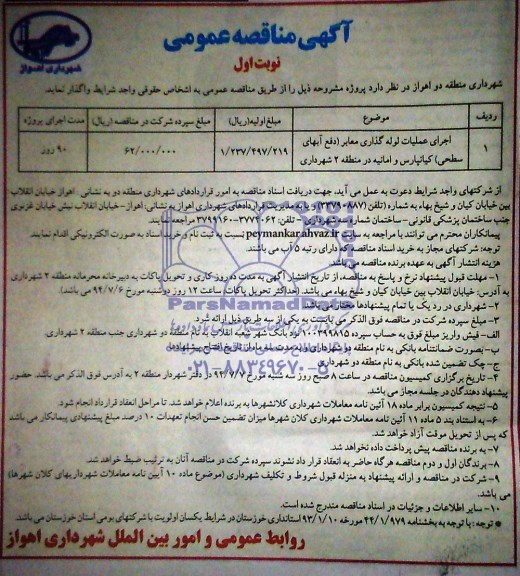 آگهی مناقصه عمومی
نوبت اول
شهرداری اهواز
شهرداری منطقه دو اهواز در نظر دارد پروژه مشروحه ذیل را از طریق مناقصه عمومی به اشخاص حقوقی واجد شرایط واگذار نماید.
ردیف موضوع مبلغ اولیه(ریال) مبلغ سپرده شرکت در مناقصه (ریال) مدت اجرای پروژه
۱ اجرای عملیات لوله گذاری معابر (دفع آبهای سطحی) کیانپارس و امانیه در منطقه ۲ شهرداری ۱/۲۳۷/۴۹۷/۲۱۹ ۶۲/۰۰۰/۰۰۰ ۹۰ روز
از شرکتهای واجد شرایط دعوت به عمل می آید، جهت دریافت اسناد مناقصه به امور قراردادهای شهرداری منطقه دو به نشانی : اهواز خیابان انقلاب
بین خیابان کیان و شیخ بهاء به شماره (تلفن ۳۳۷۹۰۸۸۷) و یا به مدیریت قراردادهای شهرداری به نشانی: اهواز - خیابان انقلاب نبش خیابان غریری
جنب ساختمان پزشکی قانونی - ساختمان شماره سه شهرداری - تلفن: مراجعه نمایند
پیمانکاران محترم می توانند با مراجعه به سایت peymankar.ahvaz.ir نسبت به ثبت نام و خرید اسناد به صورت الکترونیکی اقدام نمایند
توجه: شرکتهای مجاز به خرید اسناد مناقصه که دارای رتبه ۵ آب می باشند.
هزینه انتشار آگهی به عهده برنده مناقصه می باشد.
۱- مهلت قبول پیشنهاد نرخ و پاسخ به مناقصه، از تاریخ انتشار آگهی به مدت ده روز کاری و تحویل پاکات به دبیرخانه محرمانه منطقه ۲ شهرداری
به آدرس: خیابان انقلاب بین خیابان کیان و شیخ بهاء می باشد. (حداکثر تحویل پاکات) ساعت ۱۲ روز دوشنبه مورخ ۹۴/۷/۶ می باشد)
۲- شهرداری در رد یک یا تمام پیشنهادها مختار می باشد.
۳- مبلغ سپرده شرکت در مناقصه فوق الذکر می بایست به یکی از سه طریق ذیل ارائه شود.
الف- فیش واریز مبلغ فوق به حساب سپرده ۱۰۰۲۹۹۸۸۱۵ نزد بانک شهر شعبه انقلاب به نام منطقه دو شهرداری جنب منطقه ۲ شهرداری
ب- بصورت ضمانتنامه بانکی به نام منطقه دو شهرداری و به مدت سه ماه از تاریخ افتتاح پیشنهادها.
ج- چک تضمین شده بانکی به نام منطقه دو شهرداری.
۴- تاریخ برگزاری کمیسیون مناقصه در ساعت ۸ صبح روز سه شنبه مورخ ۹۴/۷/۷ در دفتر شهردار منطقه ۲ به آدرس فوق الذکر می باشد. حضور
پیشنهاد دهندگان در جلسه مجاز می باشد.
۵- نتیجه کمیسیون برابر ماده ۱۸ آئین نامه معاملات شهرداری کلانشهرها به برنده اعلام خواهد شد. تا مراحل انعقاد قرارداد انجام شود.
۶- به استناد بند ۵ ماده ۱۱ آئین نامه معاملات شهرداری کلان شهرها میزان تضمین حسن انجام تعهدات ۱۰ درصد مبلغ پیشنهادی پیمانکار می باشد
که پس از تحویل موقت آزاد خواهد شد.
۷- به برنده مناقصه پیش پرداخت داده نخواهد شد.
۸- برندگان اول و دوم مناقصه هرگاه حاضر به انعقاد قرار داد نشوند سپرده شرکت در مناقصه آنان به ترتیب ضبط خواهد شد.
۹- شرکت در مناقصه و ارائه پیشنهاد به منزله قبول شروط و تکلیف شهرداری (موضوع ماده ۱۰ آیین نامه معاملات شهرداریهای کلان شهرها)
می باشد.
۱۰- سایر اطلاعات و جزئیات در اسناد مناقصه مندرج شده است.
* توجه: با توجه به بخشنامه ۴۴/۱/۹۷۹ مورخه ۹۳/۱/۱۰ استانداری خوزستان در شرایط یکسان اولویت با شرکتهای بومی استان خوزستان می باشد.
روابط عمومی و امور بین الملل شهرداری اهواز
ParsNamadData
۰۲۱-۸۸۳۴۹۶۷۰-۵